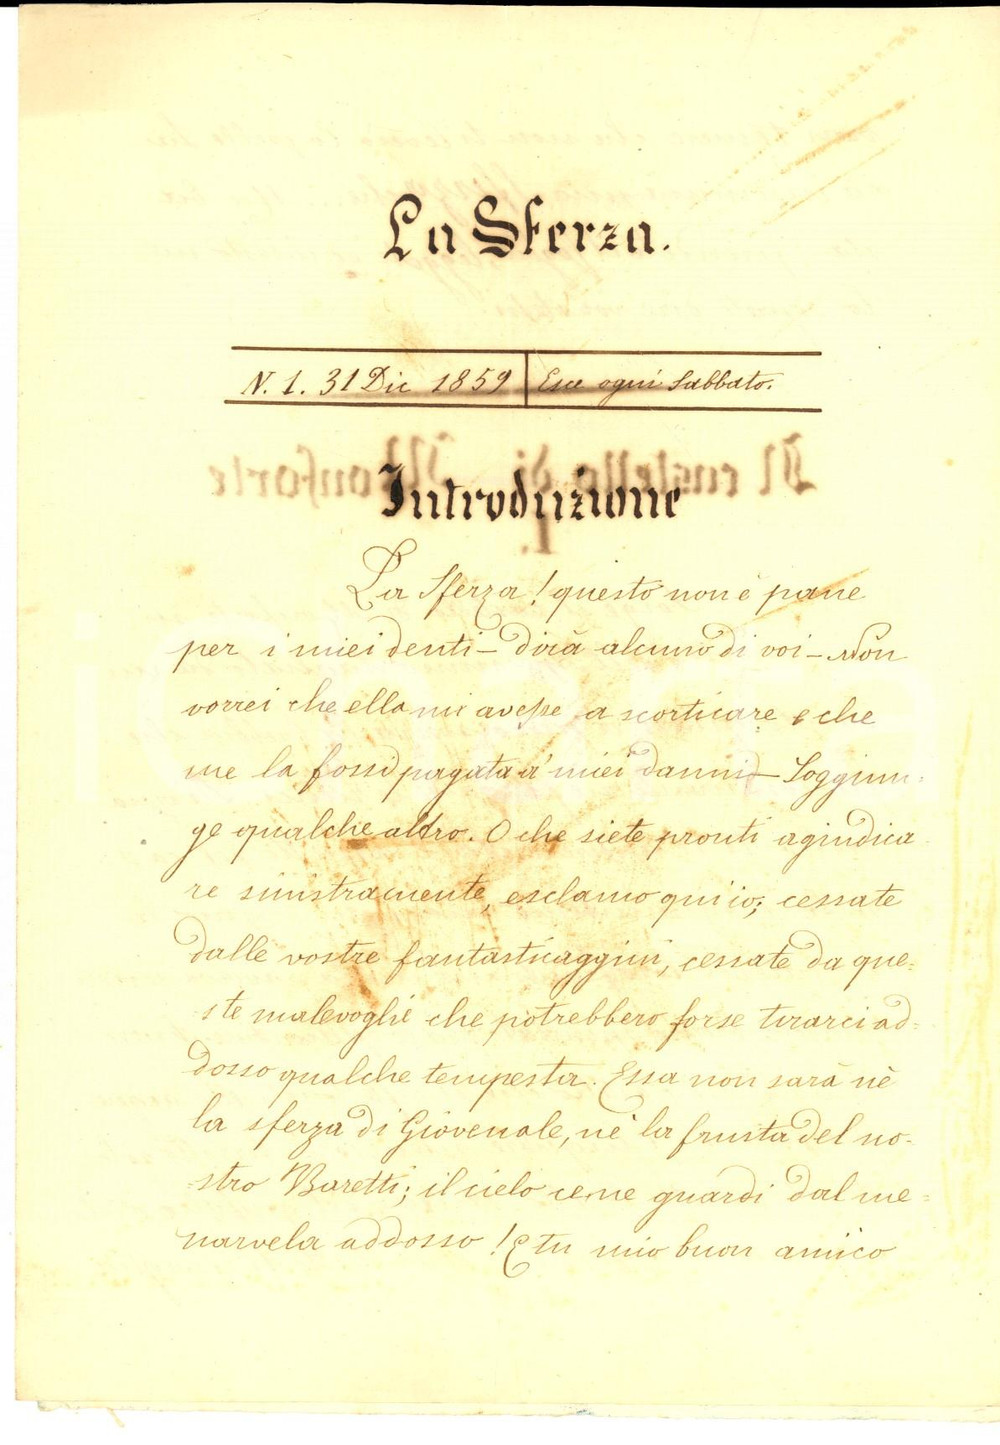 La Sferza.
N. 1. 31 Dic 1859 Esce ogni Sabbato.
Introduzione
La Sferza! questo non è pane
per i miei denti – dirà alcuno di voi – Non
vorrei che ella mi avesse a scorticare e che
me la fossi pagata a' miei danni – Soggiun=
ge qualche altro. O che siete pronti a giudica=
re sinistramente, esclamo qui io; cessate
dalle vostre fantasticaggini, cessate da que=
ste malevoglie che potrebbero forse tirarci ad=
dosso qualche tempesta. Essa non sarà nè
la sferza di Giovenale, nè la frusta del no=
stro Baretti; il cielo ce ne guardi dal me=
narvela addosso! E tu mio buon amico
Il castello di Monforte